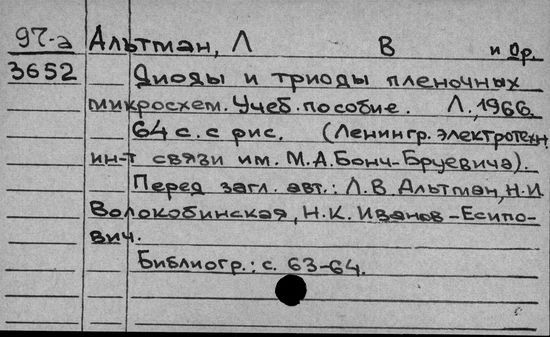 97-а Альтман, Л В и др.
3652 Диоды и триоды пленочных
микросхем. Учеб. пособие. Л., 1966.
64 с. с рис. (Ленингр. электротехн.
ин-т связи им. М.А.Бонч-Бруевича).
Перед загл. авт.: Л.В. Альтман, Н.И.
Волокобинская, Н.К. Иванов-Есипо-
вич.
Библиогр.: с. 63-64.